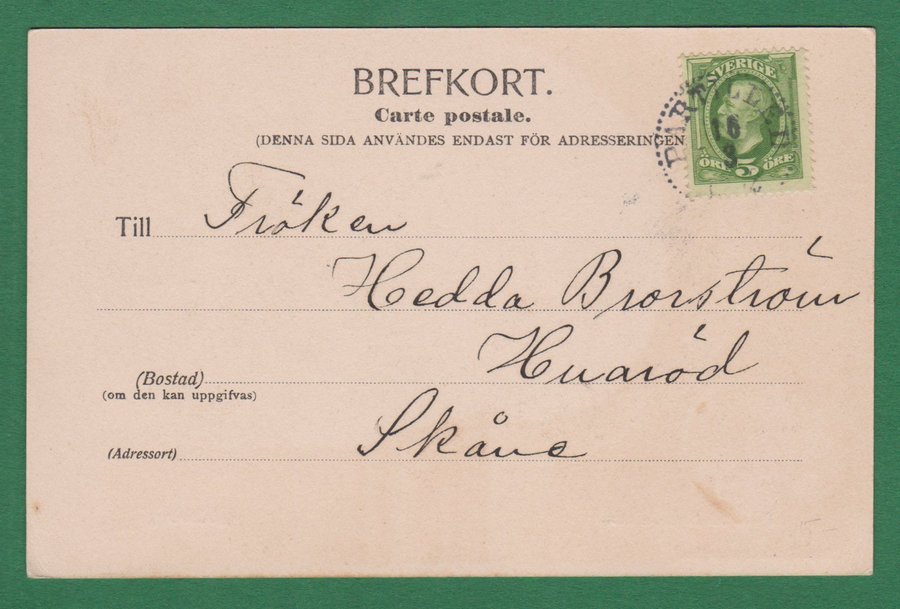 BREFKORT.
Carte postale.
(DENNA SIDA ANVÄNDES ENDAST FÖR ADRESSERINGEN
SVERIGE
16
ÖRE 5 ÖRE
Till Fröken
Hedda Brorström
Huaröd
(Bostad)
(om den kan uppgifvas)
Skåne
(Adressort)